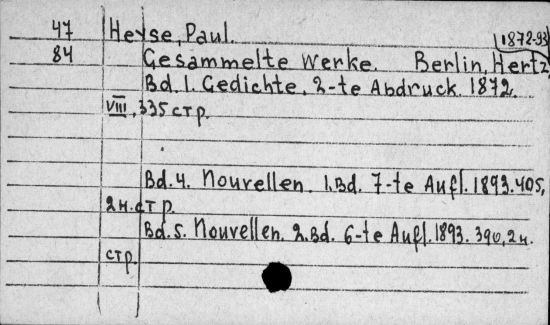 47 Heyse, Paul.
1872-93
84 Gesammelte Werke. Berlin, Hertz,
Bd. 1. Gedichte. 2-te Abdruck. 1872.
VIII, 335 стр.
Bd. 4. Nouvellen. 1. Bd. 7-te Aufl. 1893. 405,
2 н. стр.
Bd. 5. Nouvellen. 2. Bd. 6-te Aufl. 1893. 390, 2 н.
стр.